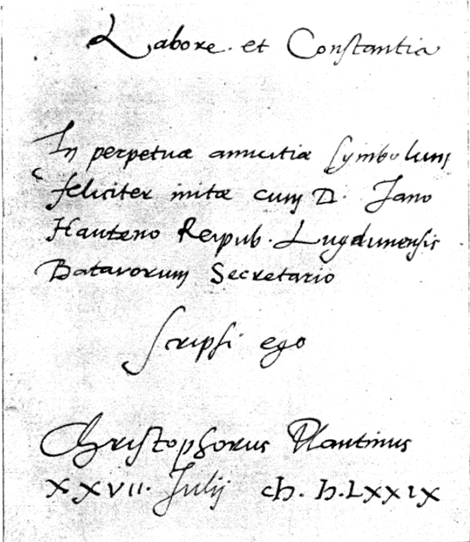 Labore. et Constantia
In perpetuæ amicitiæ symbolum
feliciter initæ cum D. Jano
Hauteno Reipub. Lugdunensis
Batavorum Secretario
Scripsi ego
Christophorus Plantinus
XXVII. Julij cIɔ. Iɔ. LXXIX